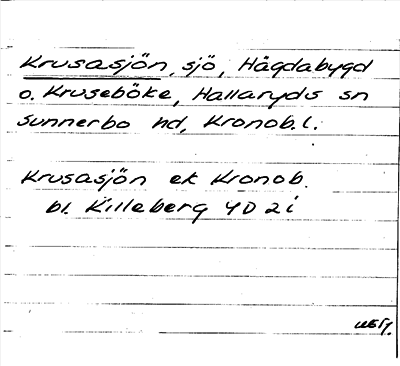 Krusasjön, sjö, Hägdabygd
o. Kruseböke, Hallaryds sn
Sunnerbo hd, Kronob.l.
Krusasjön ek Kronob.
bl. Killeberg 4D2i